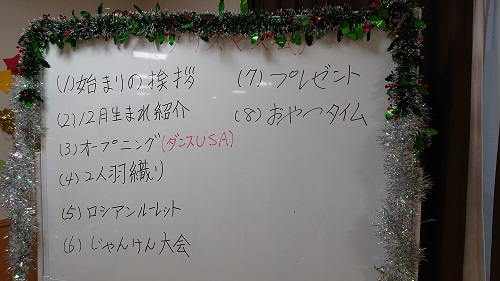 (1)始まりの挨拶
(2)12月生まれ紹介
(3)オープニング(ダンスUSA)
(4)2人羽織り
(5)ロシアンルーレット
(6)じゃんけん大会
(7)プレゼント
(8)おやつタイム